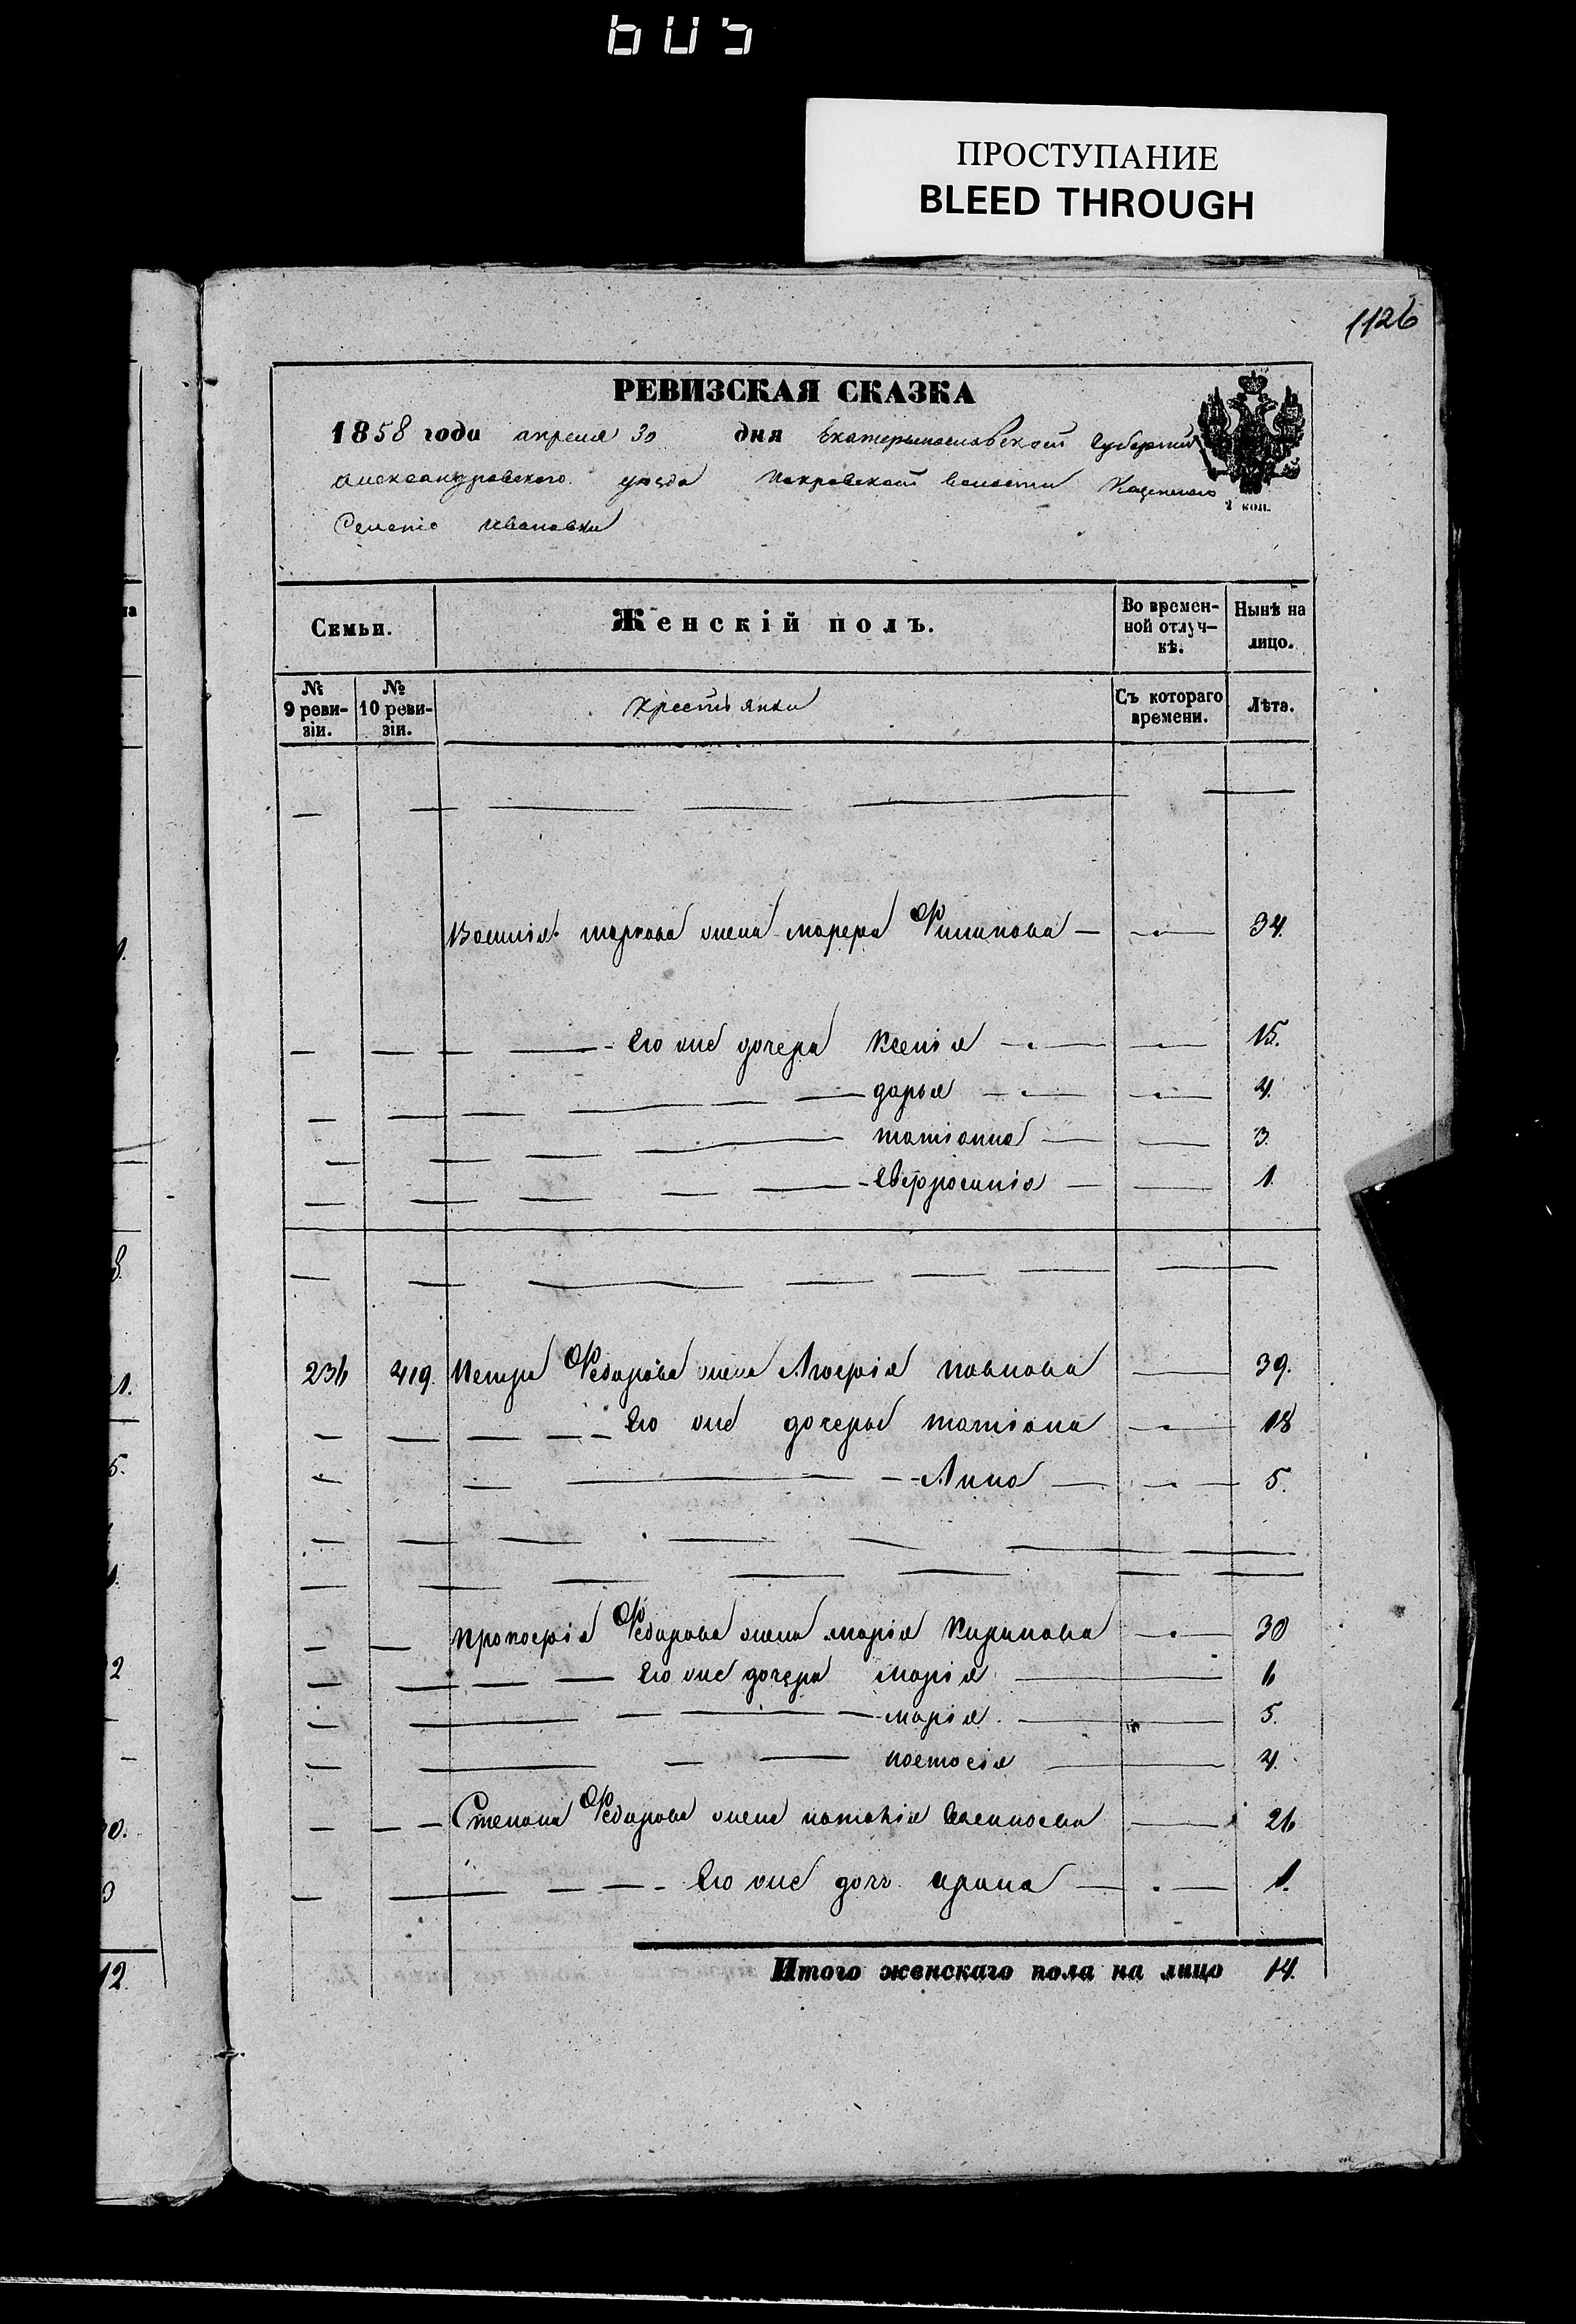 605
ПРОСТУПАНИЕ
BLEED THROUGH
1126
РЕВИЗСКАЯ СКАЗКА
1858 года апреля 30 дня Екатеринославской Губернии
Александровского уезда Покровской волости Казенного
Селенiя Ивановки
2 коп.
Семьи.
Женскiй полъ.
Во времен-
ной отлуч-
кѣ.
Нынѣ на
лицо.
№
9 реви-
зiи.
№
10 реви-
зiи.
крестьянки
Съ котораго
времени.
Лѣта.
Василiя маркова жена марфа Филипова 34.
Его же дочери Ксенiя 15.
дарья 4.
татiанна 3.
Евфросинiя 1.
236 419. Петра Федорова жена Агафiя павлова 39.
Его же дочери татiана 18
Анна 5.
прокофiя Федорова жена марiя Кирилова 30
Его же дочери марiя 6
марiя. 5.
настасiя 4.
Степана Федорова жена наталiя 26
Его же дочь ирина 1.
Итого женскаго пола на лицо 14.